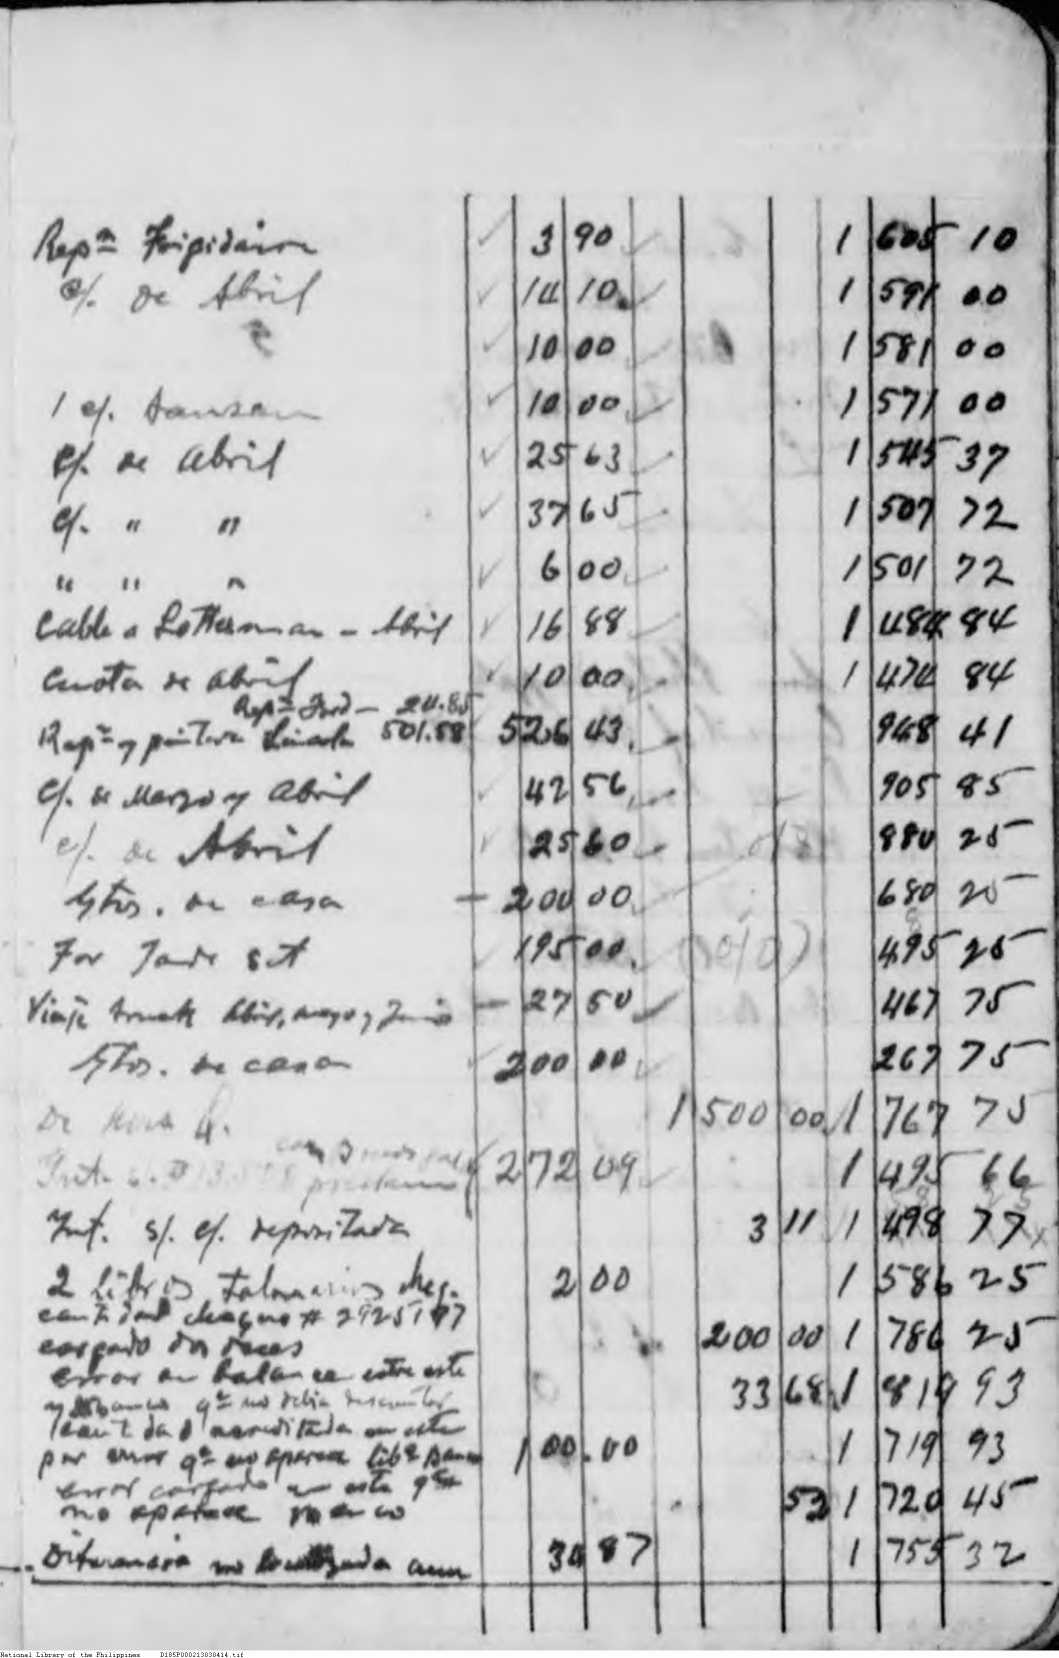 Repⁿ Frigidaire 3 90 1 605 10
c/. de Abril 14 10 1 591 00
10 00 1 581 00
1 c/. 10 00 1 571 00
c/. de Abril 25 63 1 545 37
c/. " " 37 65 1 507 72
" " " 6 00 1 501 72
Cable a Lotterman - Abril 16 88 1 484 84
Cuota de Abril 10 00 1 474 84
Repⁿ Ford - 24.85
Repⁿ y pintura Lincoln 501.58 526 43 948 41
c/. de Marzo y Abril 42 56 905 85
c/. de Abril 25 60 880 25
Gtos. de casa 200 00 680 25
For Jade set 195 00 495 25
Viaje truck Abril, mayo y Junio 27 50 467 75
Gtos. de casa 200 00 267 75
De 1 500 00 1 767 75
272 09 1 495 66
Int. s/. c/. depositada 3 11 1 498 77
2 Libros Talonarios cheq. 2 00 1 586 25
cantidad cheque # 2925197
cargado dos veces 200 00 1 786 25
error en balance entre este
y banco qᵉ no debia descontar 33 68 1 819 93
cantidad acreditada en este
por error qᵉ no aparece libᵗ Banco 100.00 1 719 93
error cargado en este qᵉ
no aparece banco 52 1 720 45
Diferencia no localizada aun 34 87 1 755 32
National Library of the Philippines D185P000213030414.tif